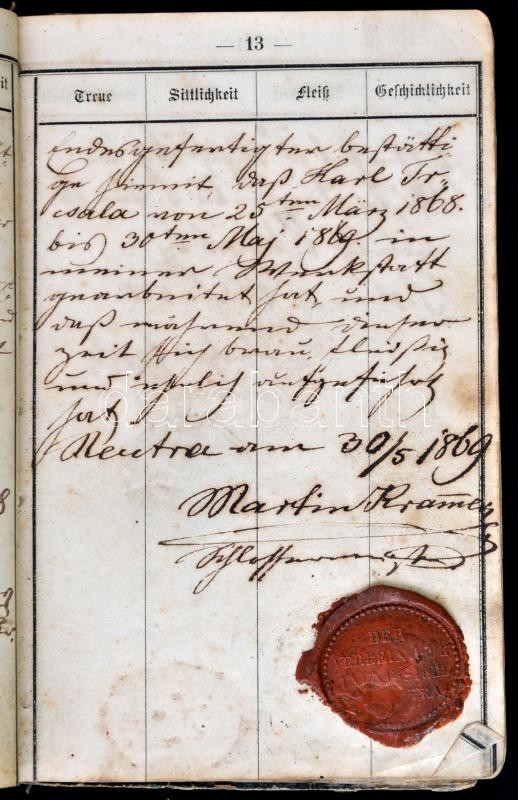 — 13 —
Treue Sittlichkeit Fleiß Geschicklichkeit
Endesgefertigter bestätti-
ge hiemit, daß Karl Tr-
csala von 25ten März 1868.
bis 30ten Maj 1869. in
meiner Werkstatt
gearbeitet hat, und
daß während dieser
zeit sich brav, fleißig
und ehrlich aufgeführt
hat,
Neutra am 30/5 1869
Martin Kramer
Schlossermeister
darabanth
DER
VEREINTEN